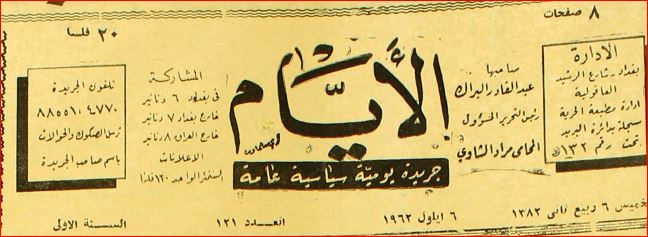 ٨ صفحات
٢٠ فلسا
الادارة
بغداد - شارع الرشيد
العاقولية
ادارة مطبعة الحرية
مسجلة بدائرة البريد
تحت رقم ١٣٢
صاحبها
عبد القادر البراك
رئيس التحرير المسؤول
المحامي مراد الشاوي
الأيّام
جريدة يوميّة سياسية عامة
المشاركة
في بغداد ٦ دنانير
خارج بغداد ٧ دنانير
خارج العراق ٨ دنانير
الاعلانات
السنتمتر الواحد ١٢٠ فلسا
تلفون الجريدة
٨٨٥٥١٠٤٧٧٠
ترسل الصكوك والحوالات
باسم صاحب الجريدة
الخميس ٦ ربيع ثاني ١٣٨٢
٦ ايلول ١٩٦٢
العدد ١٢١
السنة الاولى